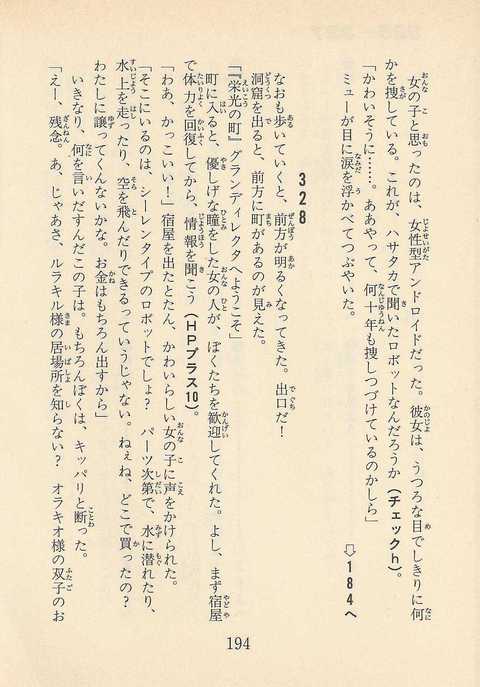 女の子と思ったのは、女性型アンドロイドだった。彼女は、うつろな目でしきりに何
かを捜している。これが、ハサタカで聞いたロボットなんだろうか(チェックh)。
「かわいそうに……。ああやって、何十年も捜しつづけているのかしら」
ミューが目に涙を浮かべてつぶやいた。
⇨184へ
328
なおも歩いていくと、前方が明るくなってきた。出口だ!
洞窟を出ると、前方に町があるのが見えた。
「『栄光の町』グランディレクタへようこそ」
町に入ると、優しげな瞳をした女の人が、ぼくたちを歓迎してくれた。よし、まず宿屋
で体力を回復してから、情報を聞こう(HPプラス10)。
「わあ、かっこいい!」宿屋を出たとたん、かわいらしい女の子に声をかけられた。
「そこにいるのは、シーレンタイプのロボットでしょ? パーツ次第で、水に潜れたり、
水上を走ったり、空を飛んだりできるっていうじゃない。ねぇね、どこで買ったの?
わたしに譲ってくんないかな。お金はもちろん出すから」
いきなり、何を言いだすんだこの子は。もちろんぼくは、キッパリと断った。
「えー、残念。あ、じゃあさ、ルラキル様の居場所を知らない? オラキオ様の双子のお
194